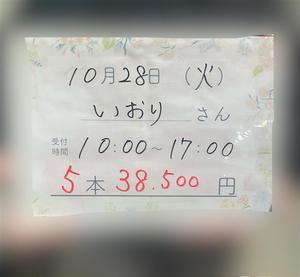 10月28日 (火)
いおり さん
受付時間 10:00～17:00
5本 38.500円